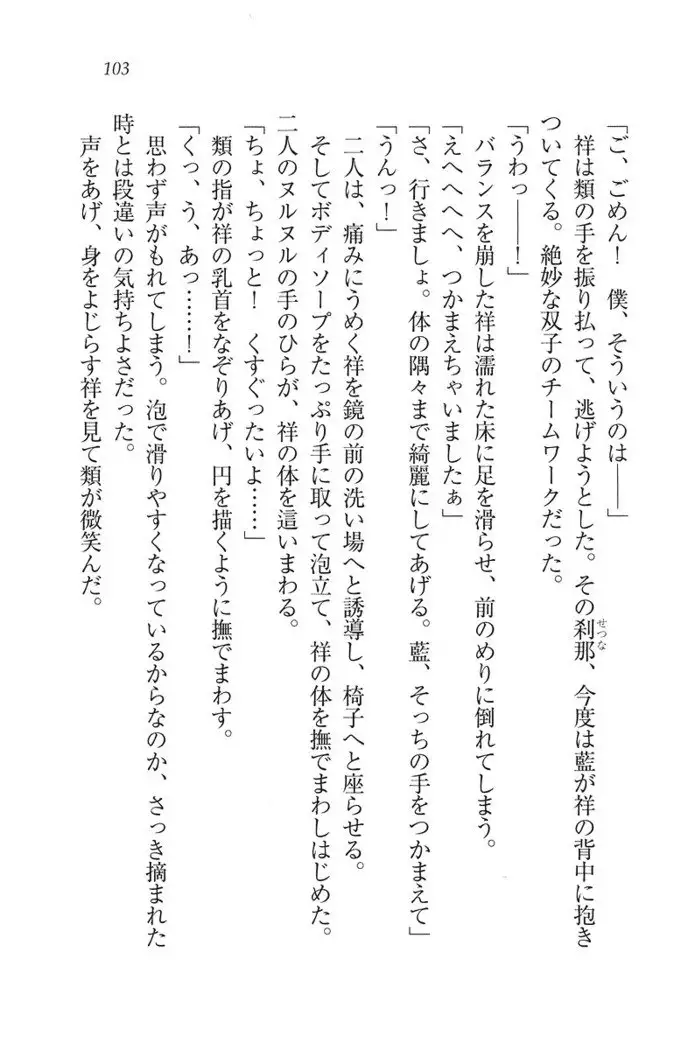 103
「ご、ごめん！　僕、そういうのは――」
祥は類の手を振り払って、逃げようとした。その刹那、今度は藍が祥の背中に抱き
せつな
ついてくる。絶妙な双子のチームワークだった。
「うわっ――！」
バランスを崩した祥は濡れた床に足を滑らせ、前のめりに倒れてしまう。
「えへへへへ、つかまえちゃいましたぁ」
「さ、行きましょ。体の隅々まで綺麗にしてあげる。藍、そっちの手をつかまえて」
「うんっ！」
二人は、痛みにうめく祥を鏡の前の洗い場へと誘導し、椅子へと座らせる。
そしてボディソープをたっぷり手に取って泡立て、祥の体を撫でまわしはじめた。
二人のヌルヌルの手のひらが、祥の体を這いまわる。
「ちょ、ちょっと！　くすぐったいよ……」
類の指が祥の乳首をなぞりあげ、円を描くように撫でまわす。
「くっ、う、あっ……！」
思わず声がもれてしまう。泡で滑りやすくなっているからなのか、さっき摘まれた
時とは段違いの気持ちよさだった。
声をあげ、身をよじらす祥を見て類が微笑んだ。